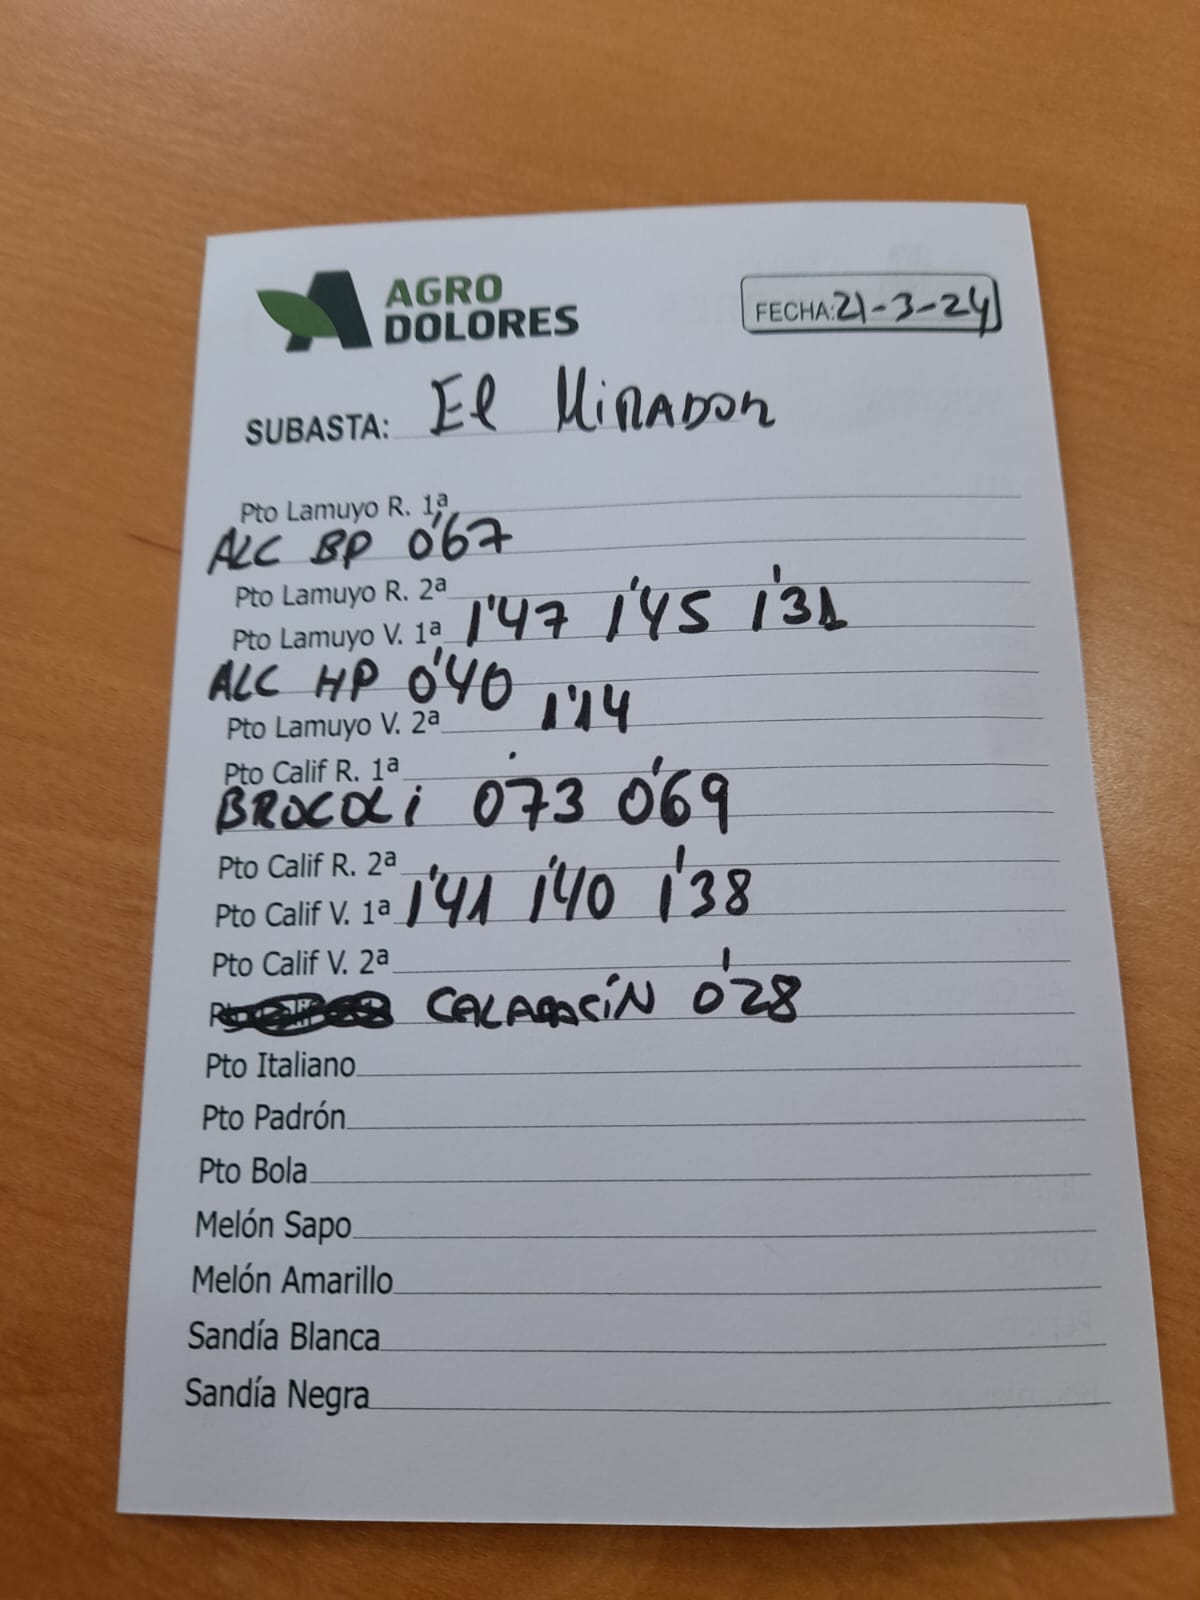 AGRO
DOLORES
FECHA: 21-3-24
SUBASTA: El MiRADOR
Pto Lamuyo R. 1ª
ALC BP 0'67
Pto Lamuyo R. 2ª
Pto Lamuyo V. 1ª 1'47 1'45 1'31
ALC HP 0'40
Pto Lamuyo V. 2ª 1'14
Pto Calif R. 1ª
BROCOLi 0'73 0'69
Pto Calif R. 2ª
Pto Calif V. 1ª 1'41 1'40 1'38
Pto Calif V. 2ª
CALABACÍN 0'28
Pto Italiano
Pto Padrón
Pto Bola
Melón Sapo
Melón Amarillo
Sandía Blanca
Sandía Negra